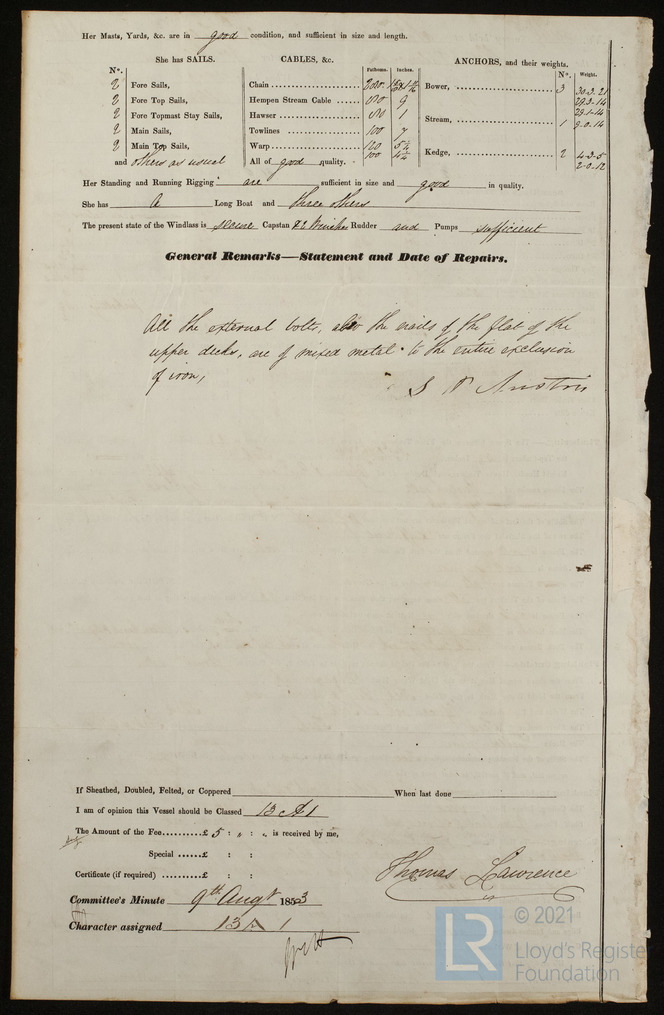 Her Masts, Yards, &c. are in good condition, and sufficient in size and length.
She has SAILS. CABLES, &c. ANCHORS, and their weights.
N°. Fathoms. Inches. N°. Weight.
2 Fore Sails, Chain 200 Bower, 3 30.3.21
2 Fore Top Sails, Hempen Stream Cable 9 29.3.14
2 Fore Topmast Stay Sails, Hawser 1 29.1.14
2 Main Sails, Towlines 100 7 Stream, 1 9.0.14
2 Main Top Sails, Warp 120 5½
and others as usual 100 4½ All of good quality. Kedge, 2 4.3.5
2.0.12
Her Standing and Running Rigging are sufficient in size and good in quality.
She has A Long Boat and three others
The present state of the Windlass is secure Capstan & 2 Winches Rudder and Pumps sufficient
General Remarks—Statement and Date of Repairs.
All the external bolts, also the nails of the flat of the
upper decks, are of mixed metal to the entire exclusion
of iron,
If Sheathed, Doubled, Felted, or Coppered When last done
I am of opinion this Vessel should be Classed 13 A 1
The Amount of the Fee..........£ 5 : „ : „ is received by me,
Special ......£ : :
Certificate (if required) .........£ : :
Thomas Lawrence
Committee's Minute 9th Augt 1853
Character assigned 13 A 1
© 2021
LR Lloyd's Register
Foundation